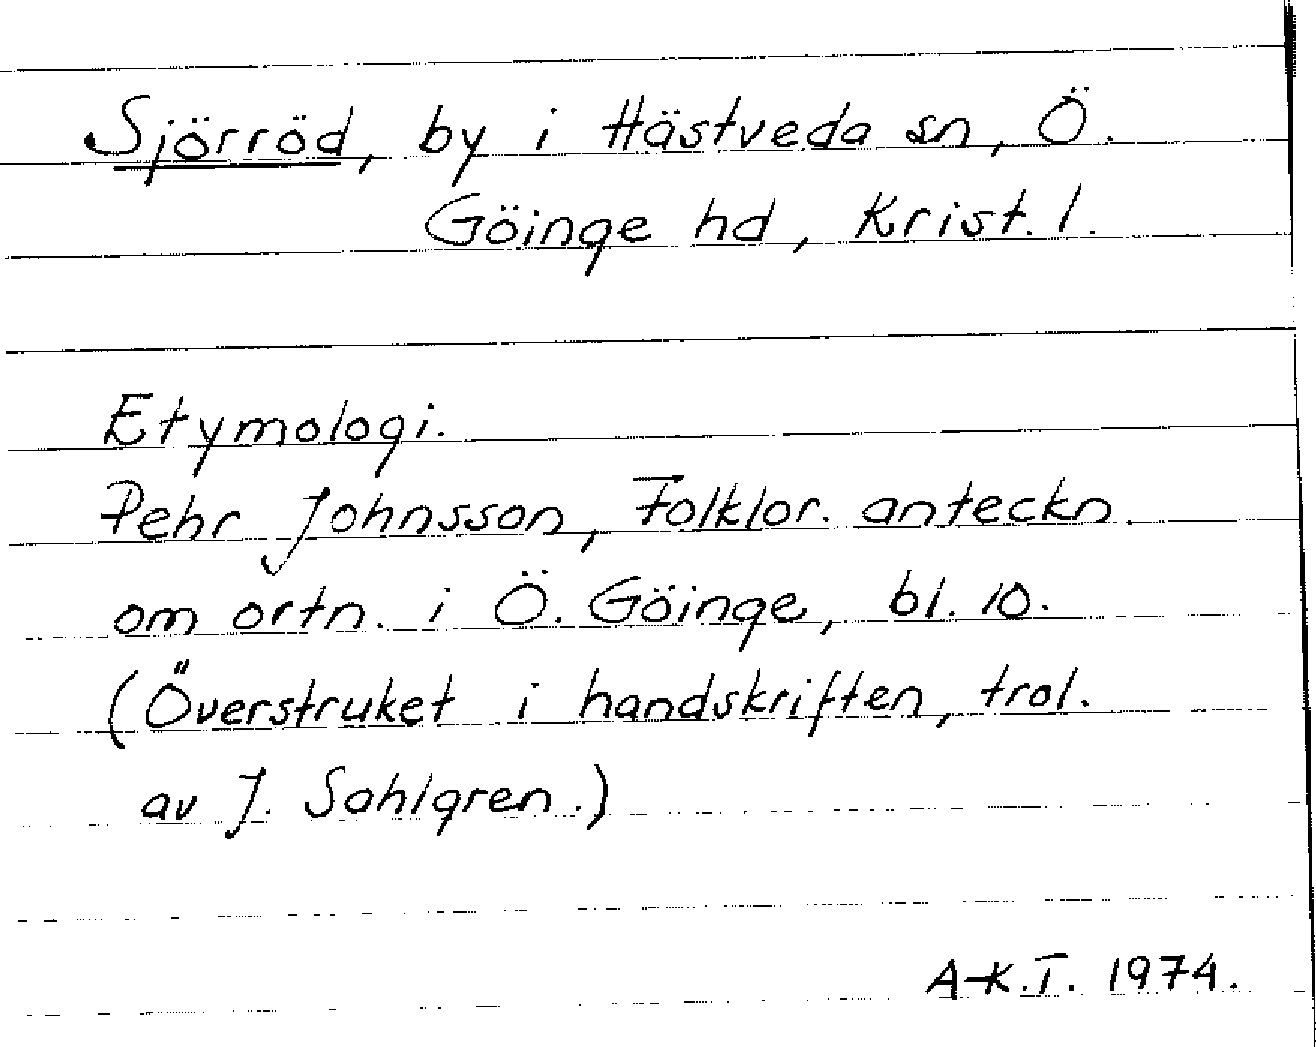 Sjörröd, by i Hästveda sn, Ö.
Göinge hd, Krist. l.
Etymologi.
Pehr Johnsson, Folklor. anteckn.
om ortn. i Ö. Göinge, bl. 10.
(Överstruket i handskriften, trol.
av J. Sahlgren.)
A-K.T. 1974.